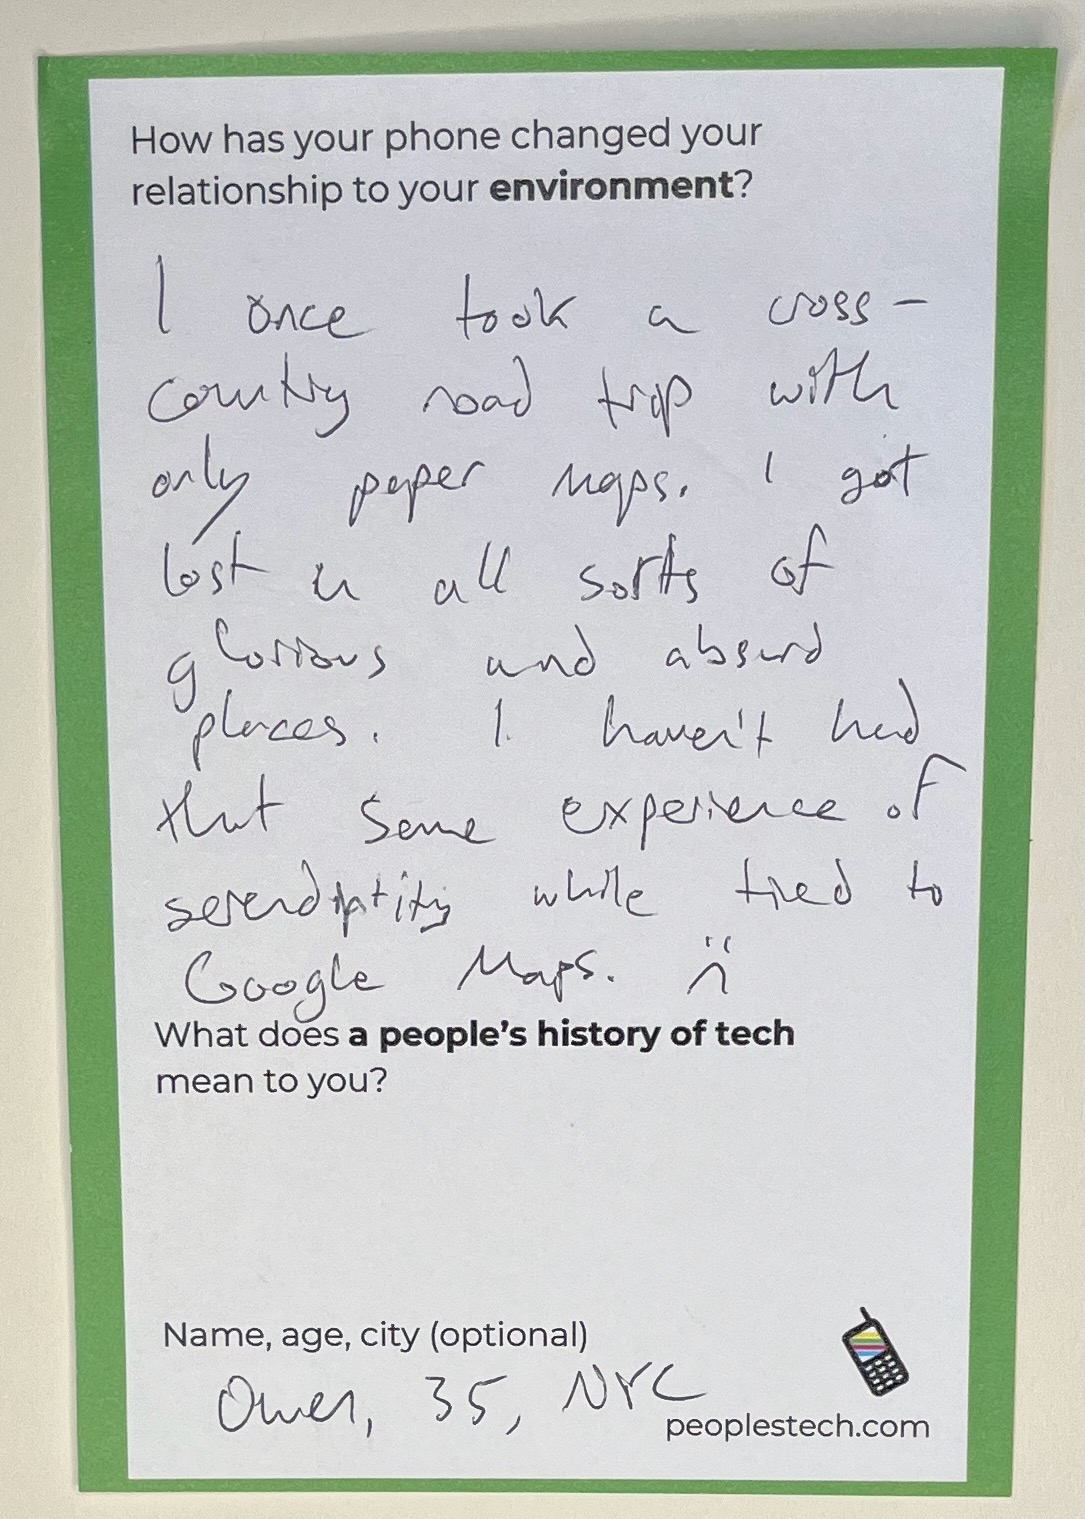 How has your phone changed your
relationship to your environment?
I once took a cross-
country road trip with
only paper maps. I got
lost in all sorts of
glorious and absurd
places. I haven't had
that same experience of
serendiptity while tied to
Google Maps. :(
What does a people's history of tech
mean to you?
Name, age, city (optional)
Owen, 35, NYC
peoplestech.com